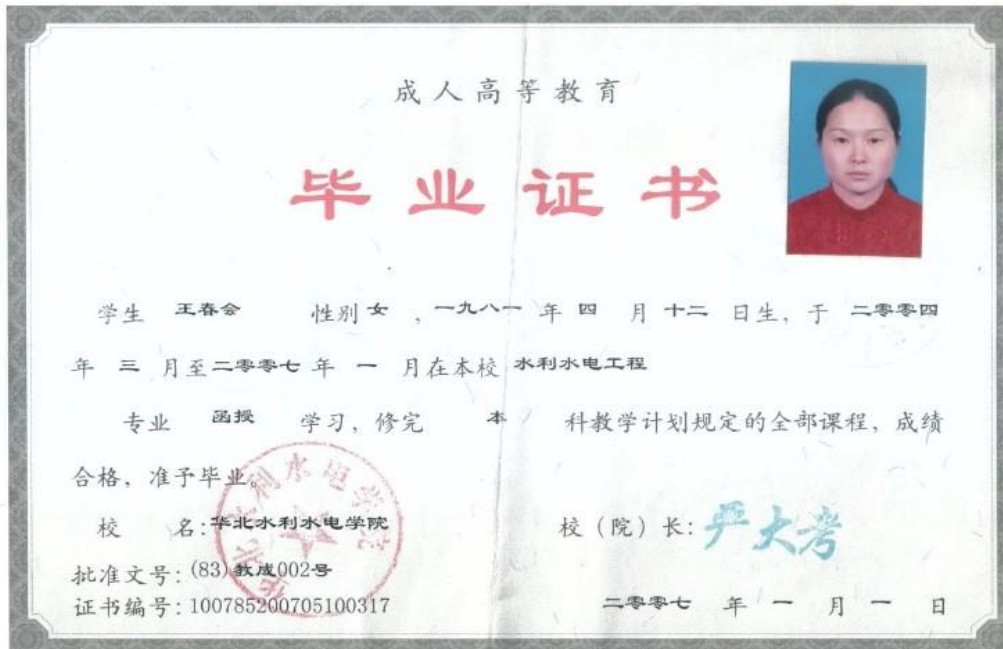 成人高等教育
毕业证书
学生 王春会 性别 女 ，一九八一 年 四 月 十二 日生，于 二零零四
年 三 月至 二零零七 年 一 月在本校 水利水电工程
专业 函授 学习，修完 本 科教学计划规定的全部课程，成绩
合格，准予毕业。
华北水利水电学院
校 名：华北水利水电学院 校（院）长：严大考
批准文号：(83)教成002号
证书编号：100785200705100317 二零零七 年 一 月 一 日